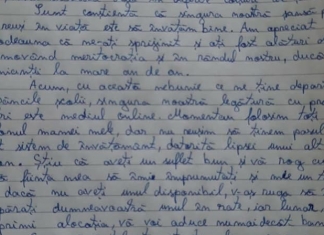 Sunt conștientă că singura noastră șansă
reuși în viață este să învățăm bine. Am apreciat
odeauna că ne-ați sprijinit și ați fost alături d
movând meritocrația și în rândul nostru, ducâ
la mare an de an.
Acum, cu această nebunie ce ne ține depart
băncile școlii, singura noastră legătură cu pro
ri este mediul online. Momentan folosim toți
onul mamei mele, dar nu reușim să ținem pasul
sistem de învățământ, datorită lipsei unui alt
on. Știu că aveți un suflet bun și vă rog cu
ființa mea să îmi împrumutați și mie un t
dacă nu aveți unul disponibil, v-aș ruga să
părați dumneavoastră unul în rate, iar lunar,
primi alocația, vă voi aduce numaidecât bani